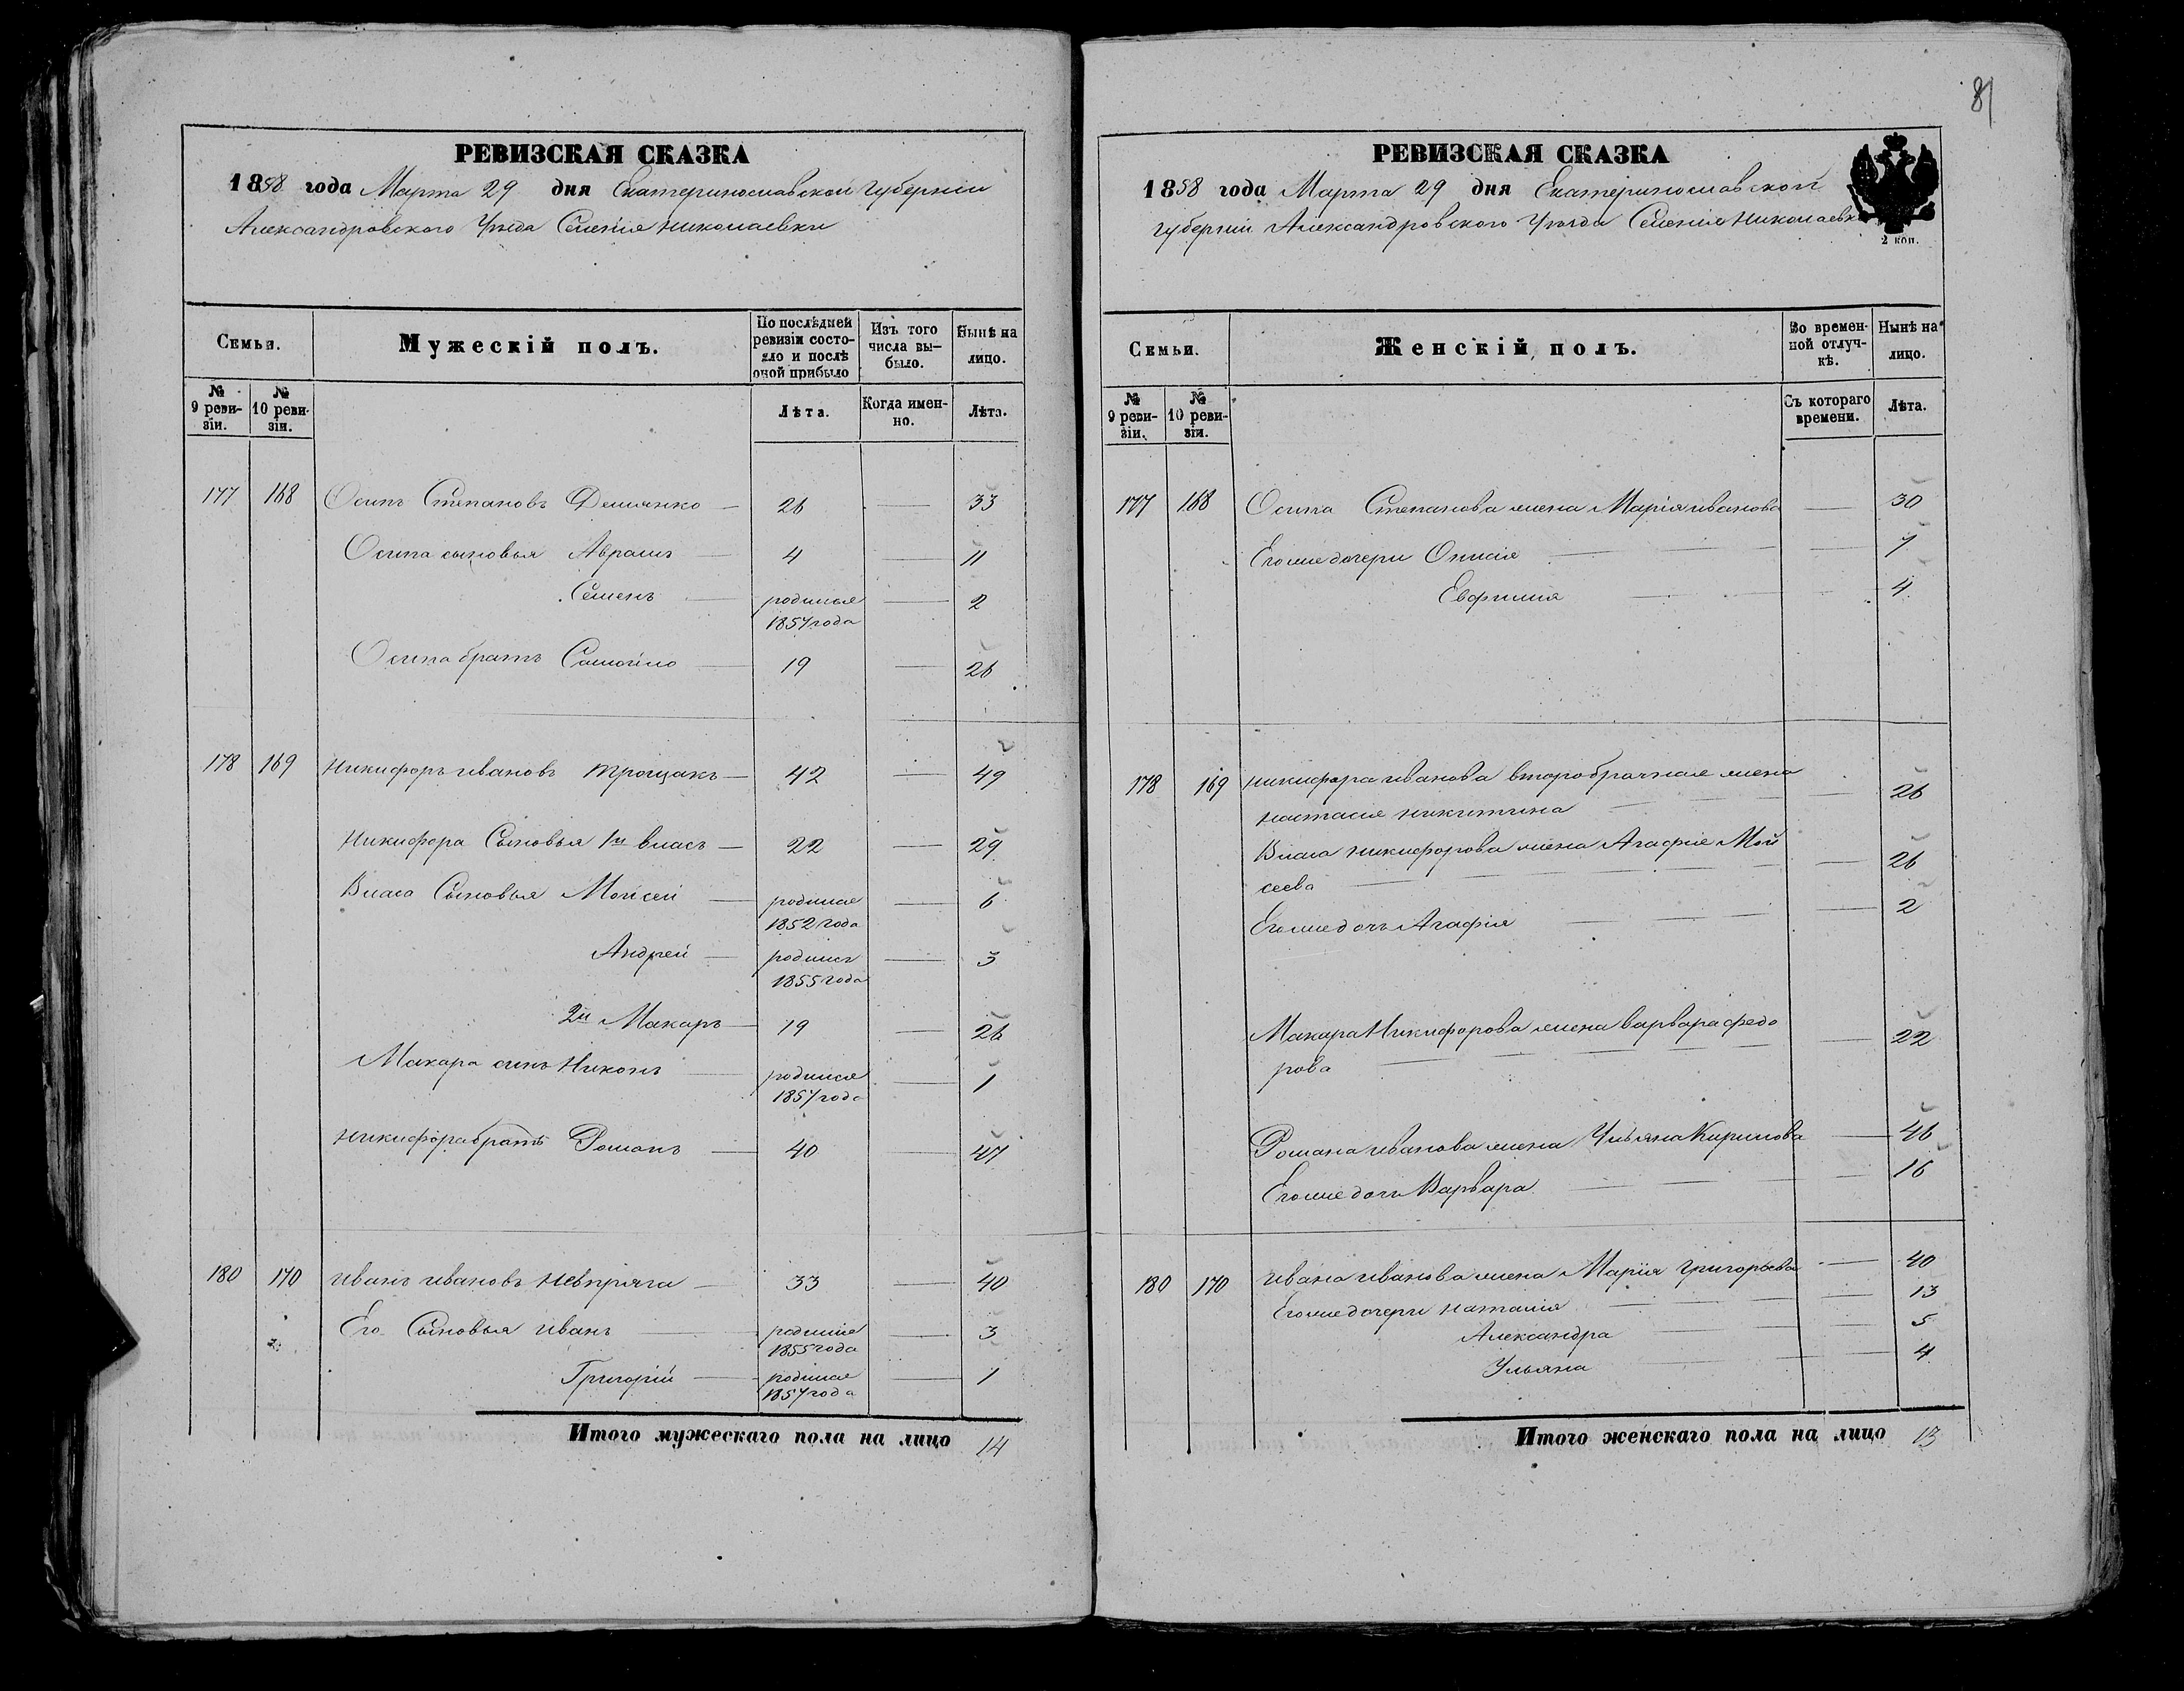 81
РЕВИЗСКАЯ СКАЗКА
1858 года Марта 29 дня Екатеринославской Губернiи
Александровского Уѣзда Селенiя Николаевки
Семьи.
Мужескiй полъ.
По послѣдней ревизiи состояло и послѣ оной прибыло
Изъ того числа выбыло.
Нынѣ на лицо.
№ 9 ревизiи.
№ 10 ревизiи.
Лѣта.
Когда именно.
Лѣта.
177 168 Осипъ Степановъ Демянко — 26 — 33
Осипа сыновья Абрамъ — 4 — 11
Семенъ — родился 1857 года — 2
Осипа братъ Самойло — 19 — 26
178 169 Никифоръ Ивановъ Трощакъ — 42 — 49
Никифора Сыновья 1й Власъ — 22 — 29
Власа Сыновья Мойсей — родился 1852 года — 6
Андрей — родился 1855 года — 3
2й Макаръ — 19 — 26
Макара сынъ Никонъ — родился 1857 года — 1
Никифора братъ Романъ — 40 — 47
180 170 Иванъ Ивановъ Невпряга — 33 — 40
Его Сыновья Иванъ — родился 1855 года — 3
Григорiй — родился 1857 года — 1
Итого мужескаго пола на лицо 14
РЕВИЗСКАЯ СКАЗКА
1858 года Марта 29 дня Екатеринославской
Губернiи Александровского Уѣзда Селенiя Николаевки
2 коп.
Семьи.
Женскiй полъ.
Во временной отлучкѣ.
Нынѣ на лицо.
№ 9 ревизiи.
№ 10 ревизiи.
Съ котораго времени.
Лѣта.
177 168 Осипа Степанова жена Марiя Иванова — 30
Его же дочери Онисiя — 7
Евфимия — 4
178 169 Никифора Иванова второбрачная жена
Настасия Никитина — 26
Власа Никифорова жена Агафiя Мой
сеева — 26
Его же дочь Агафiя — 2
Макара Никифорова жена Варвара Федо
рова — 22
Романа Иванова жена Ульяна Кирилова — 46
Его же дочь Варвара — 16
180 170 Ивана Иванова жена Марiя Григорьева — 40
Его же дочери Наталiя — 13
Александра — 5
Ульяна — 4
Итого женскаго пола на лицо 13